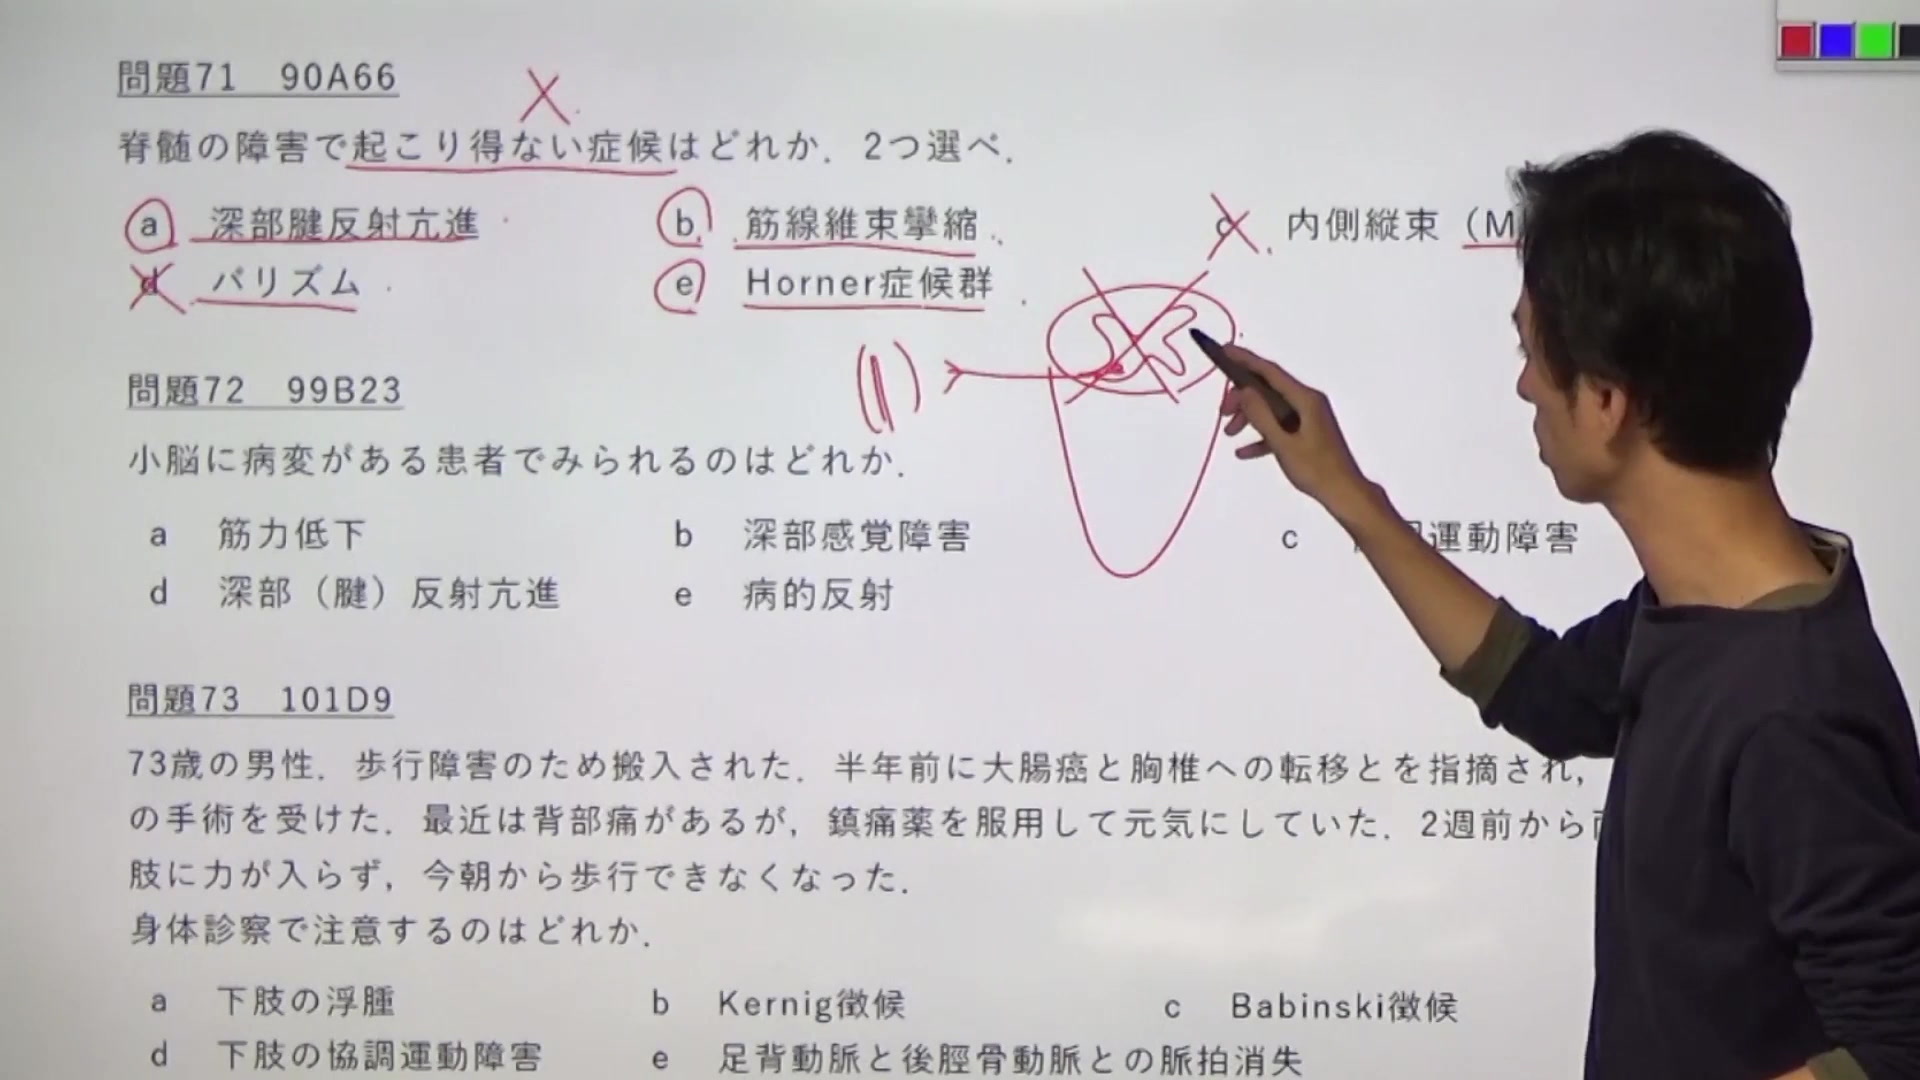 問題71 90A66
脊髄の障害で起こり得ない症候はどれか．2つ選べ．
a 深部腱反射亢進 b 筋線維束攣縮 c 内側縦束（M
d バリズム e Horner症候群
問題72 99B23
小脳に病変がある患者でみられるのはどれか．
a 筋力低下 b 深部感覚障害 c 運動障害
d 深部（腱）反射亢進 e 病的反射
問題73 101D9
73歳の男性．歩行障害のため搬入された．半年前に大腸癌と胸椎への転移とを指摘され，
の手術を受けた．最近は背部痛があるが，鎮痛薬を服用して元気にしていた．2週前から
肢に力が入らず，今朝から歩行できなくなった．
身体診察で注意するのはどれか．
a 下肢の浮腫 b Kernig徴候 c Babinski徴候
d 下肢の協調運動障害 e 足背動脈と後脛骨動脈との脈拍消失